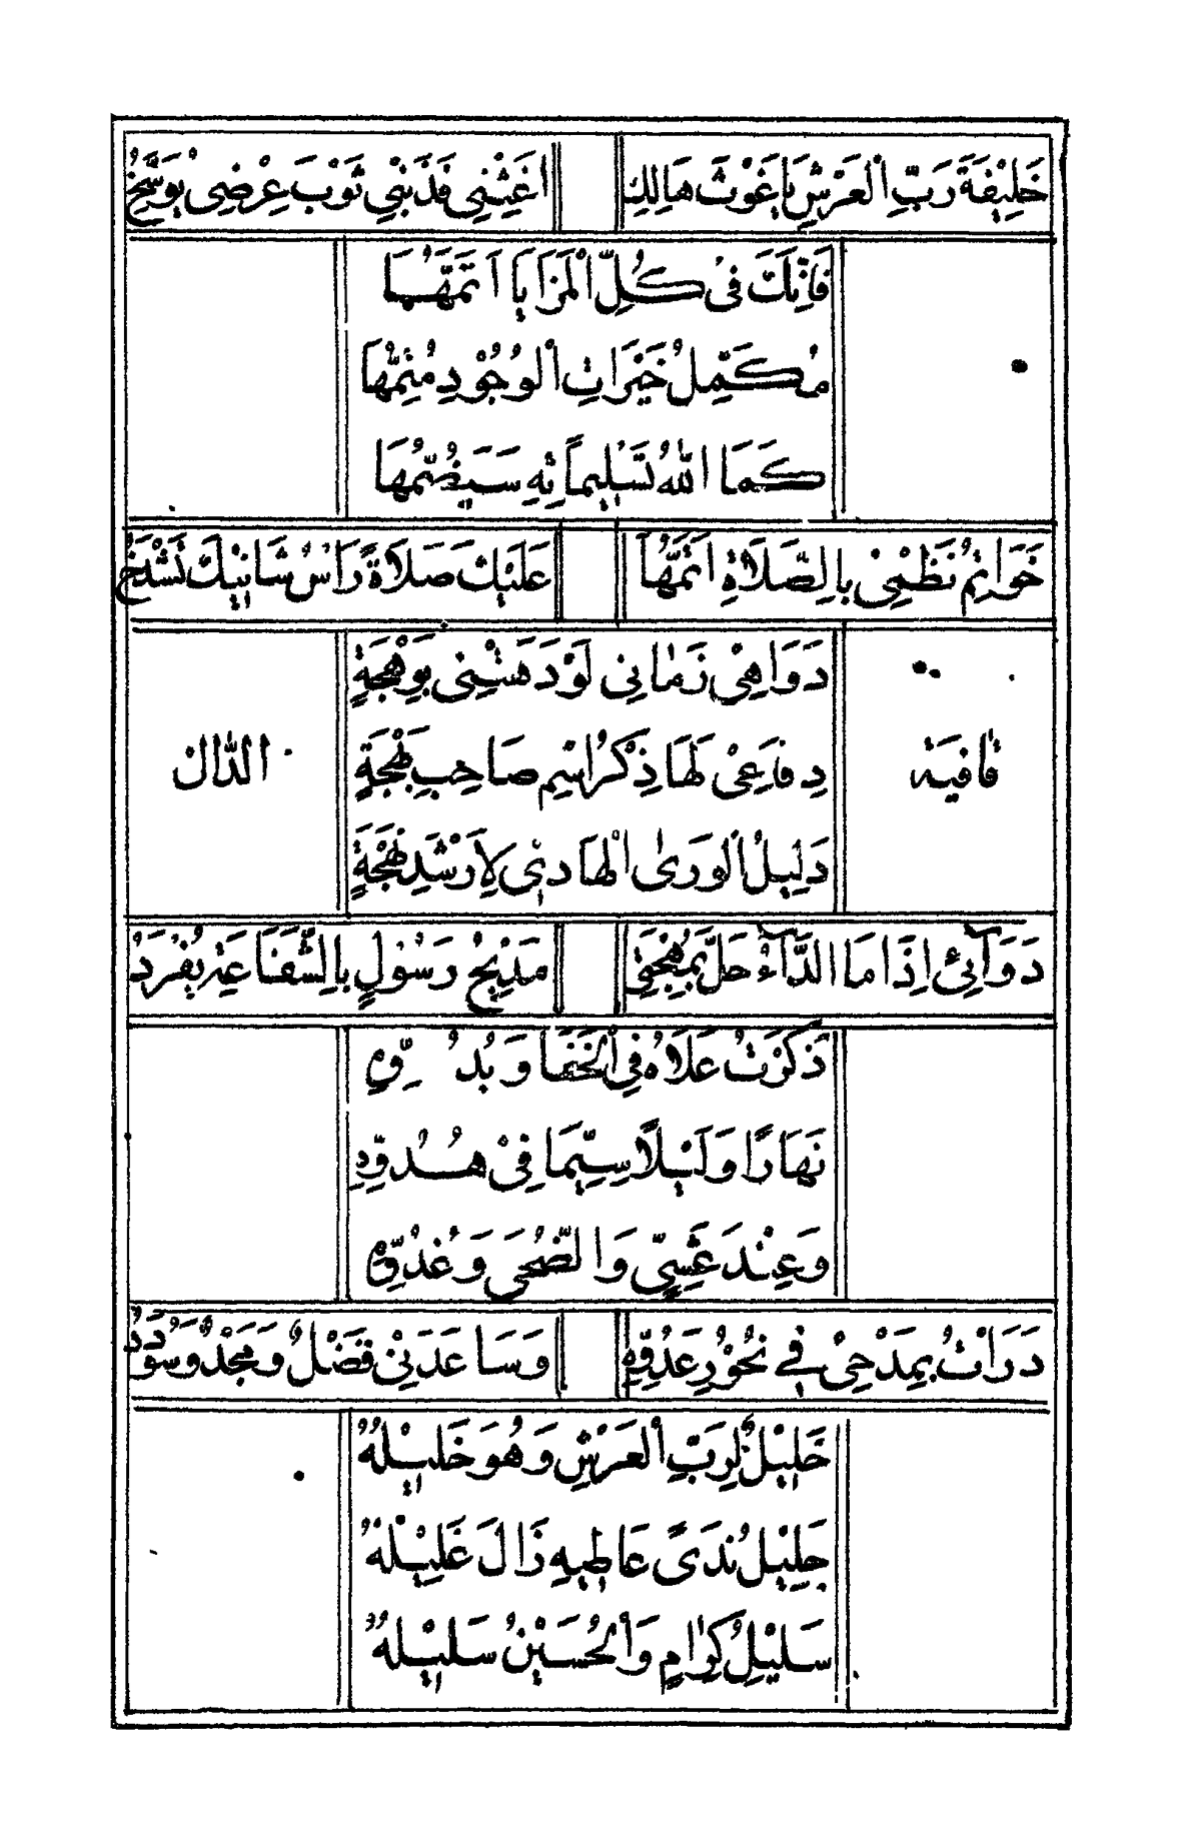 خَلِيْفَةَ رَبِّ الْعَرْشِ يَا غَوْثَ هَالِكٍ اَغِثْنِي فَذَنْبِيْ ثَوْبَ عِرْضِى يُوَسِّخُ
فَاِنَّكَ فِىْ كُلِّ الْمَزَايَا اَتَمُّهَا
مُكَمِّلُ خَيْرَاتِ الْوُجُوْدِ مُتِمُّهَا
كَمَا اللهُ تَسْلِيمًا بِهِ سَيَضُمُّهَا
خَوَاتِمُ نَظْمِيْ بِالصَّلَاةِ اَتَمُّهَا عَلَيْكَ صَلَاةً رَاْسُ شَانِيْكَ تَشْدَخُ
دَوَاهِيْ زَمَانِي لَوْ دَهَتْنِى بِوَهْجَةٍ
قافية دِفَاعِىْ لَهَا ذِكْرُ اسْمِ صَاحِبِ بَهْجَةٍ الدال
دَلِيلُ الْوَرَىٰ الْهَادِيْ لِاَرْشَدِ نَهْجَةٍ
دَوَآئِىْ اِذَا مَا الدَّآءُ حَلَّ بِمُهْجَتِيْ مَدِيْحُ رَسُوْلٍ بِالشَّفَاعَةِ يُفْرَدُ
ذَكَرْتُ عَلَاهُ فِي الْخَفَا وَبُدُوِّهِ
نَهَارًا وَلَيْلًا سِيَّمَا فِىْ هُدُوِّهِ
وَعِنْدَ عَشِيٍّ وَالضُّحَى وَغُدُوِّهِ
دَرَأْتُ بِمَدْحِيْ فِي نُحُوْرِ عَدُوِّهِ وَسَاعَدَنِيْ فَضْلٌ وَمَجْدٌ وَسُوْدَدُ
خَلِيْلٌ لِرَبِّ الْعَرْشِ وَهُوَ خَلِيْلُهُ
جَلِيْلُ نَدَىً عَاطِيهِ زَالَ غَلِيْلُهُ
سَلِيْلُ كِرَامٍ وَالْحُسَيْنُ سَلِيْلُهُ